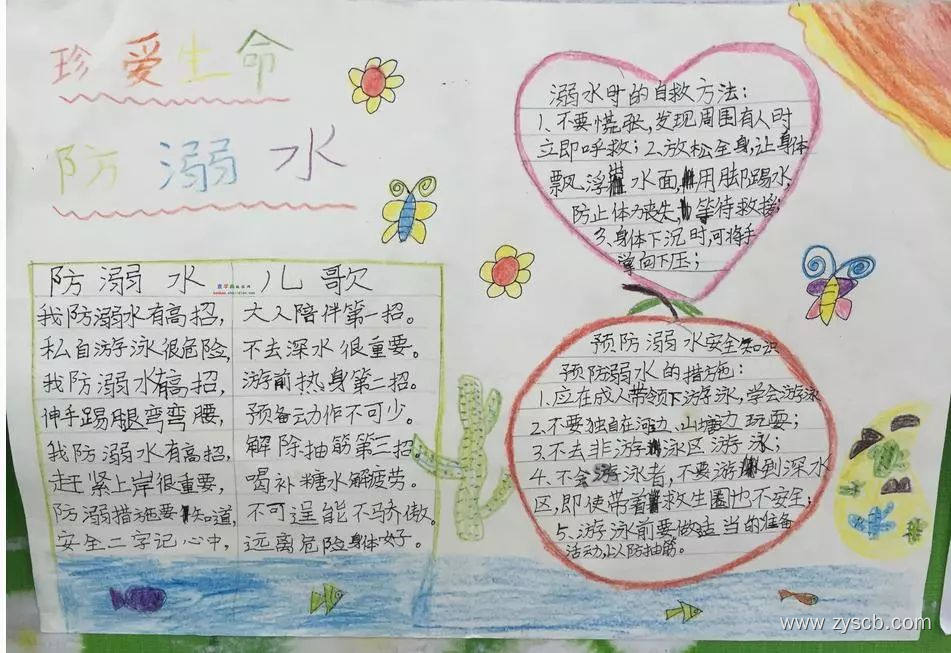 珍爱生命
防溺水
防溺水儿歌
我防溺水有高招，大人陪伴第一招。
私自游泳很危险，不去深水很重要。
我防溺水有高招，游前热身第二招。
伸手踢腿弯弯腰，预备动作不可少。
我防溺水有高招，解除抽筋第三招
赶紧上岸很重要，喝补糖水解疲劳。
防溺措施要知道，不可逞能不骄傲。
安全二字记心中，远离危险身体好。
溺水时的自救方法：
1、不要慌张，发现周围有人时
立即呼救；2、放松全身，让身体
飘浮水面，用脚踢水，
防止体力丧失，等待救援；
3、身体下沉时，可将手
掌向下压；
预防溺水安全知识
预防溺水的措施：
1、应在成人带领下游泳，学会游泳
2、不要独自在河边、山塘边玩耍；
3、不去非游泳区游泳；
4、不会游泳者，不要游到深水
区，即使带着救生圈也不安全；
5、游泳前要做适当的准备
活动，以防抽筋。
www.zyscb.com